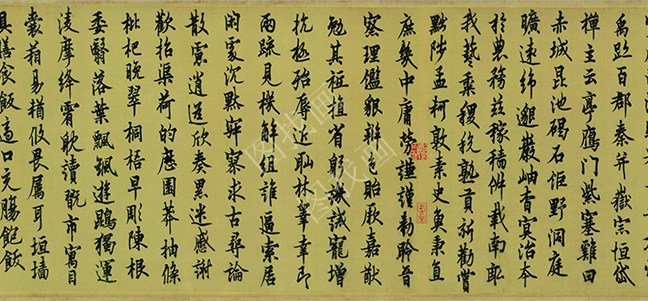 禹跡百郡秦并嶽宗恒岱
禪主云亭鴈門紫塞雞田
赤城昆池碣石鉅野洞庭
曠遠綿邈巖岫杳冥治本
於農務茲稼穡俶載南畝
我藝黍稷稅熟貢新勸賞
黜陟孟軻敦素史魚秉直
庶幾中庸勞謙謹勑聆音
察理鑑貌辨色貽厥嘉猷
勉其祗植省躬譏誡寵增
抗極殆辱近恥林睾幸即
兩疏見機解組誰逼索居
閑處沈默寂寥求古尋論
散慮逍遙欣奏累遣慼謝
歡招渠荷的歷園莽抽條
枇杷晚翠桐梧早彫陳根
委翳落葉飄颻遊鵾獨運
淩摩絳霄耽讀翫市寓目
囊箱易輶攸畏屬耳垣墻
具膳飡飯適口充腸飽飫